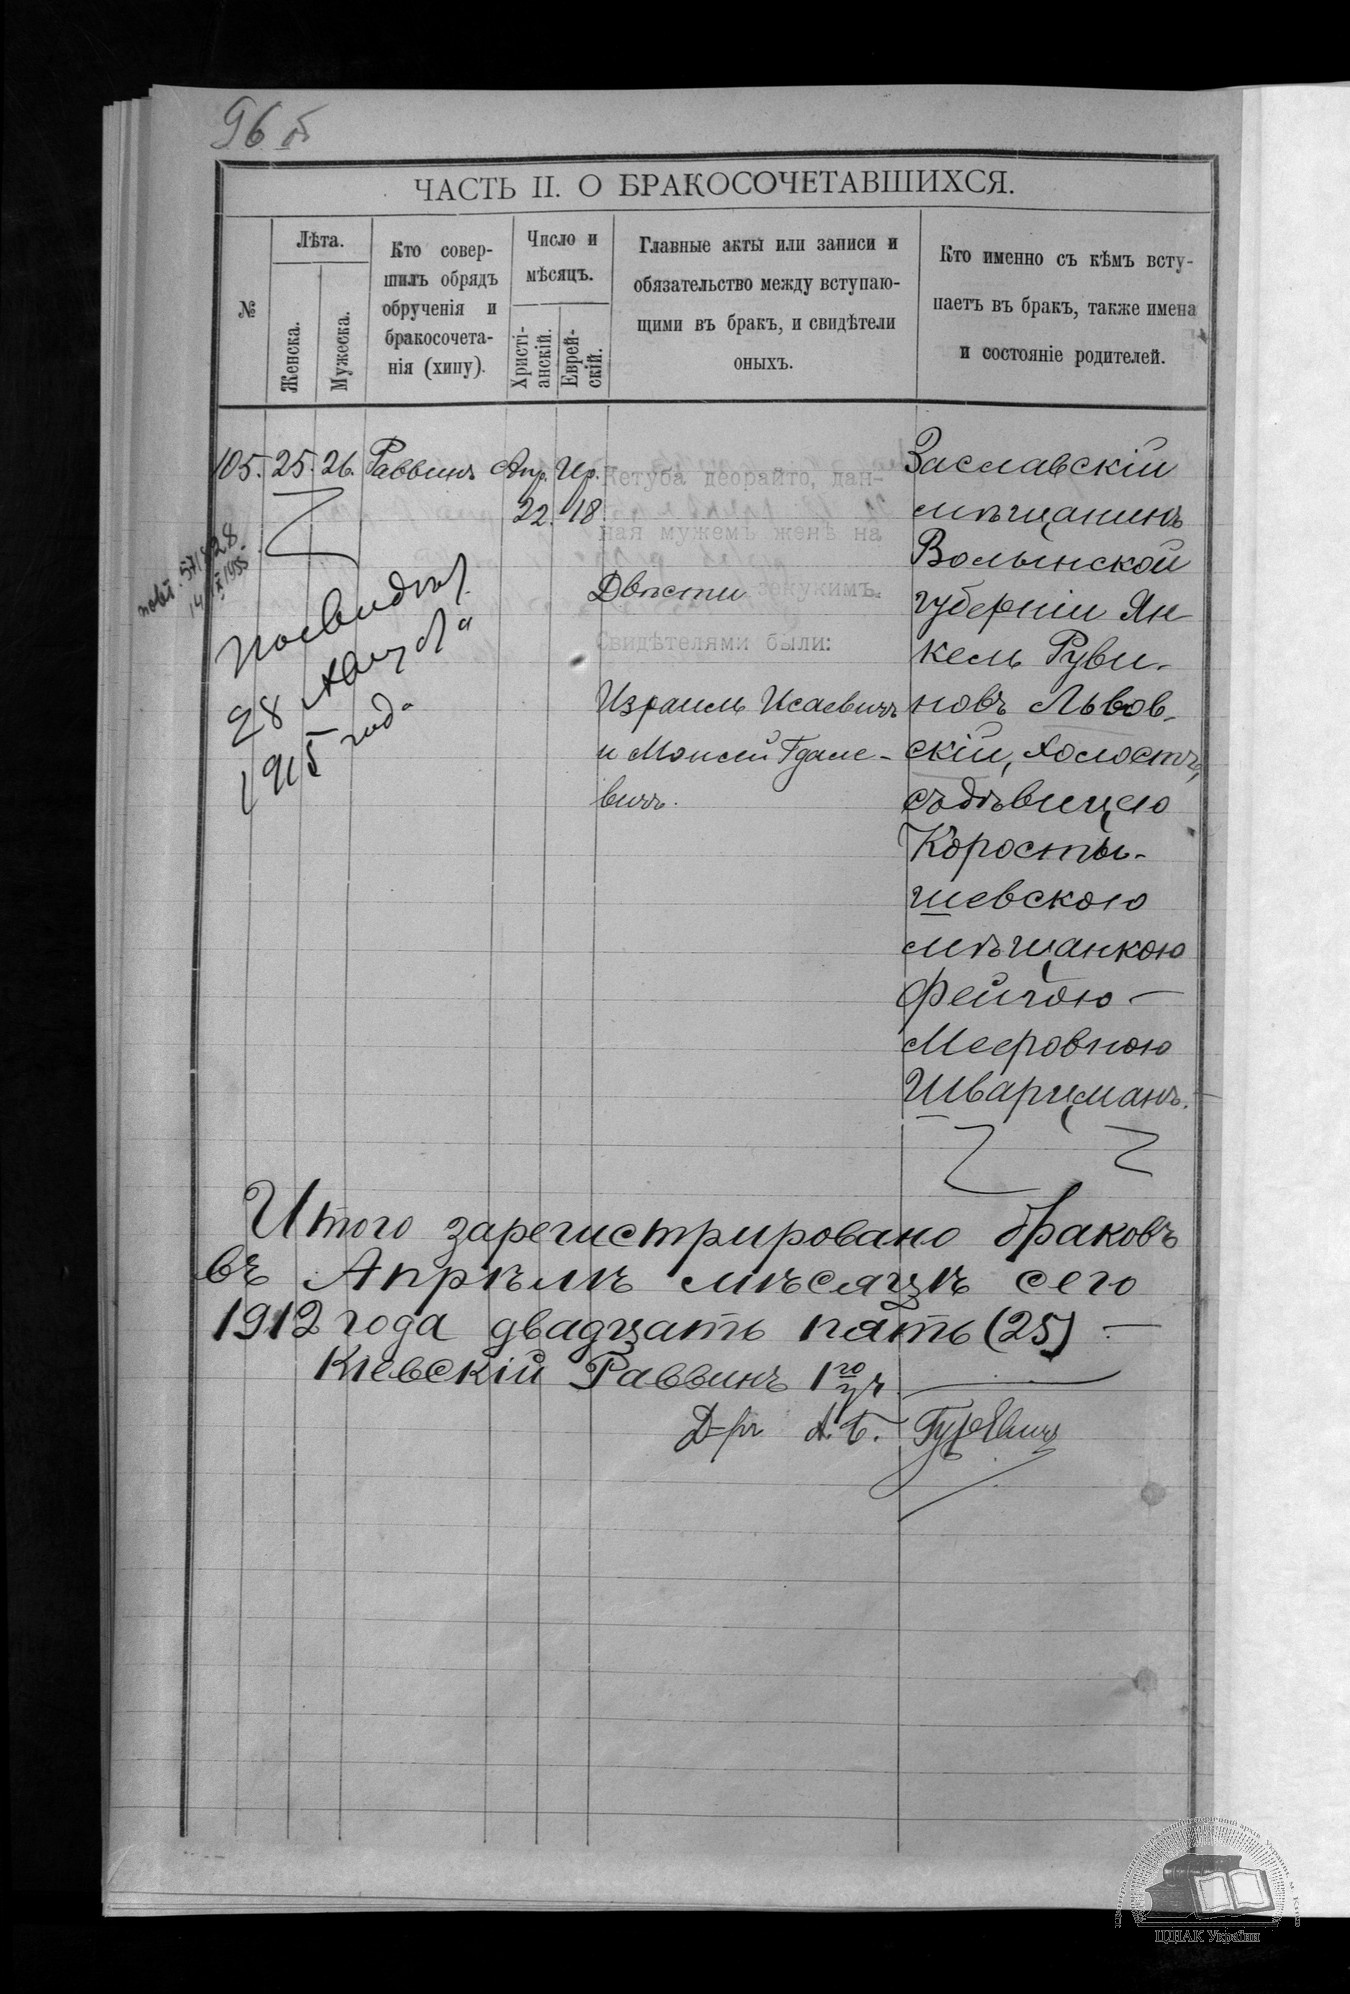 96 об
ЧАСТЬ II. О БРАКОСОЧЕТАВШИХСЯ.
№
Лѣта.
Женска.
Мужеска.
Кто совер-
шилъ обрядъ
обрученія и
бракосочета-
нія (хипу).
Число и
мѣсяцъ.
Христі-
анскій.
Еврей-
скій.
Главные акты или записи и
обязательство между вступаю-
щими въ бракъ, и свидѣтели
оныхъ.
Кто именно съ кѣмъ всту-
паетъ въ бракъ, также имена
и состояніе родителей.
105. 25. 26. Раввинъ Апр. Ир.
22. 18.
Кетуба деорайто, дан-
ная мужемъ женѣ на
Двѣсти зекукимъ.
Свидѣтелями были:
Израиль Исаевичъ
и Моисей Гдале-
вичъ.
Заславскій
мѣщанинъ
Волынской
губерніи Ян-
кель Руви-
новъ Львов-
скій, холостъ,
съ дѣвицею
Коросты-
шевскою
мѣщанкою
Фейгою —
Мееровною
Шварцманъ.
571828
14 IX 1955
28 Августа
1915 года
Итого зарегистрировано браковъ
въ Апрѣлѣ мѣсяцѣ сего
1912 года двадцать пять (25) —
Кіевскій Раввинъ 1го уч.
Д-ръ А. Б. Гуревичъ
ЦДІАК України